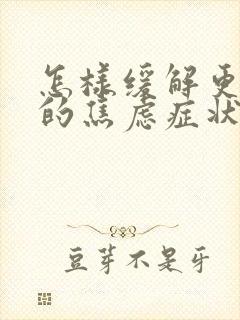 怎样缓解更
的焦虑症状
豆芽不是牙